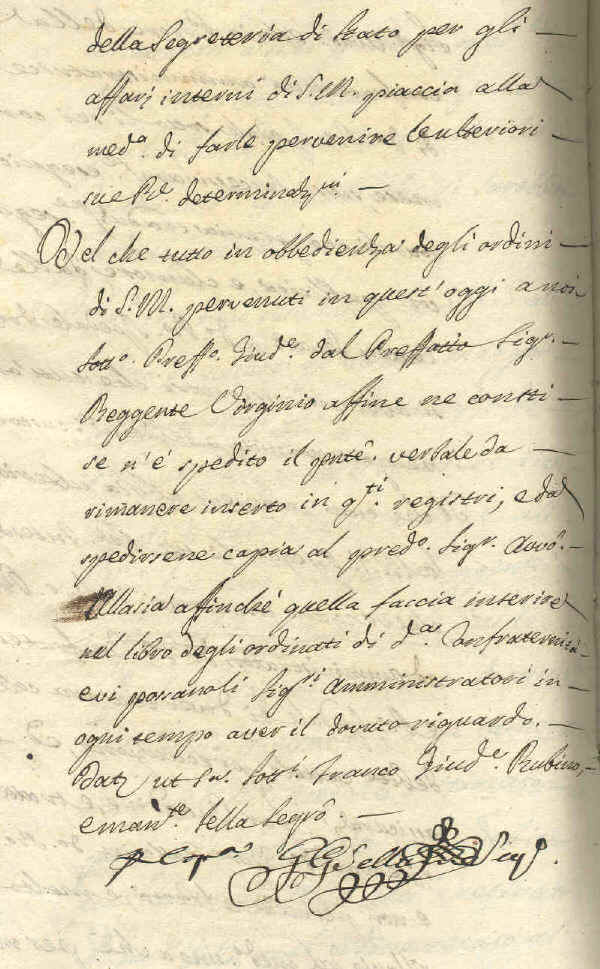 della Segreteria di Stato per gli —
affari interni di S. M. piaccia alla
med.ª di farle pervenire le ulteriori —
sue R.e determinaz.ni —
Del che tutto in obbedienza degli ordini —
di S. M. pervenuti in quest' oggi a noi
Sott.o Preff.o Giud.e dal Preffatto Sig.r —
Reggente Virginio affine ne constti —
se n' é spedito il pnte. verbale da —
rimanere inserto in q.ti registri, e da
spedirsene copia al pred.o Sig.r Avvo. —
Allasia affinché quella faccia inserire
nel libro degli ordinati di d.a Confraternita
e vi possano li Sig.ri Amministratori in —
ogni tempo aver il dovuto riguardo. —
Dat. ut s.a Sott.i Franco Giud.e Rubino, —
e man.te Sella Segro. —
p Copia Sella Seg.o